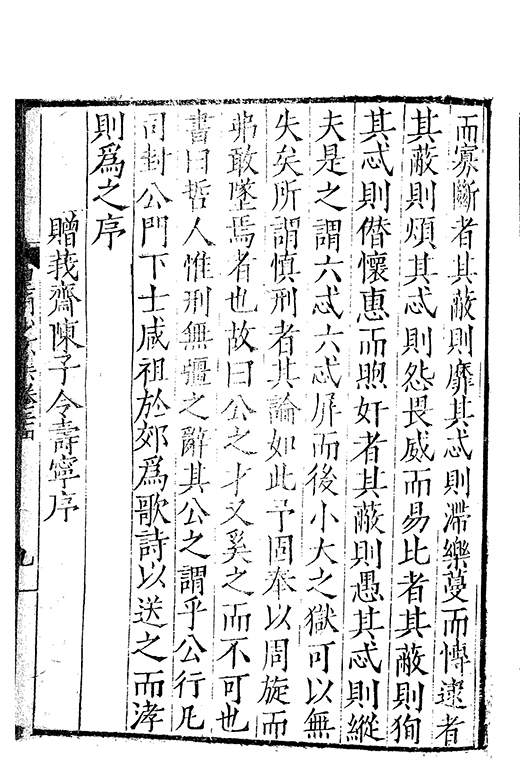 而寡斷者其蔽則靡其忒則滯樂蔓而慱逮者
其蔽則煩其忒則怨畏威而易比者其蔽則狥
其忒則僭懷惠而煦奸者其蔽則愚其忒則縱
夫是之謂六忒六忒屏而後小大之獄可以無
失矣所謂慎刑者其論如此予固奉以周旋而
弗敢墜焉者也故曰公之才又奚之而不可也
書曰哲人惟刑無疆之辭其公之謂乎公行凡
司封公門下士咸祖於郊爲歌詩以送之而涍
則爲之序
贈莪齋陳子令壽寧序
九